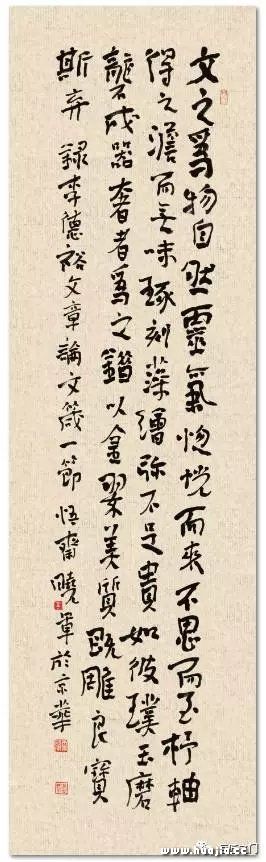 文之爲物自然靈氣惚恍而來不思而至杼軸
得之澹而無味琢刻藻繪弥不足貴如彼璞玉磨
礱成器奢者爲之錯以金翠美質既雕良寶
斯弃 録李德裕文章論文箴一節 悟齋曉軍於京華
www.huajia.cc